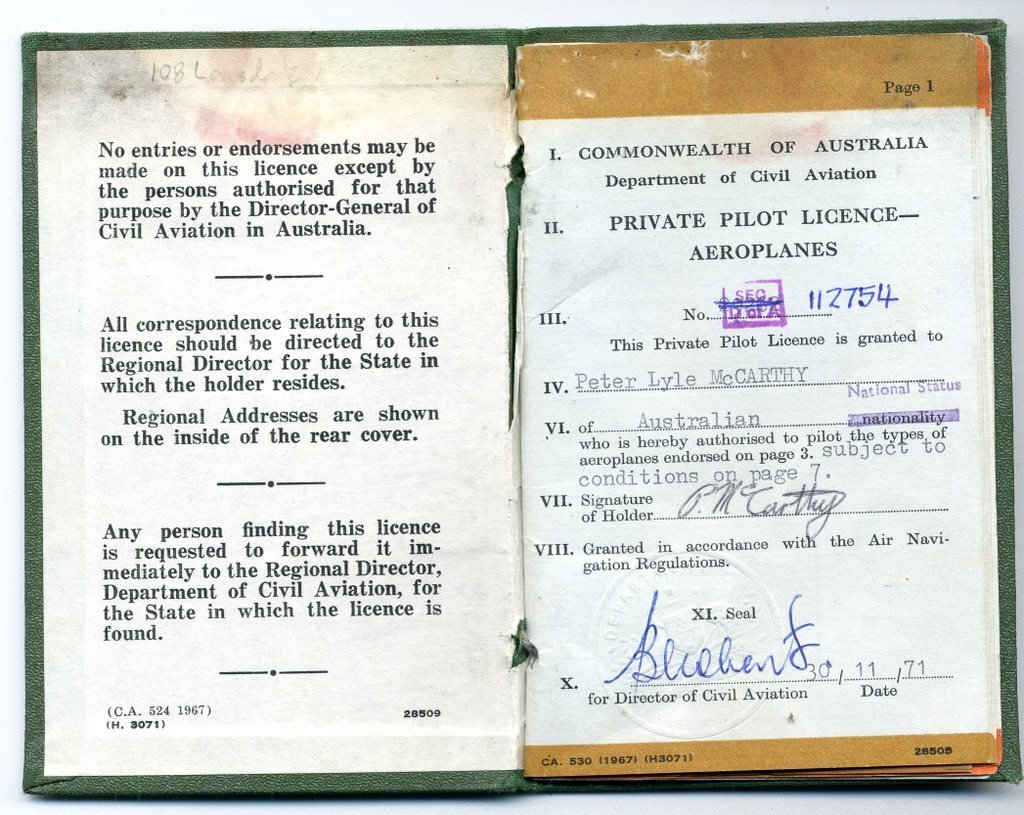 108
No entries or endorsements may be
made on this licence except by
the persons authorised for that
purpose by the Director-General of
Civil Aviation in Australia.
All correspondence relating to this
licence should be directed to the
Regional Director for the State in
which the holder resides.
Regional Addresses are shown
on the inside of the rear cover.
Any person finding this licence
is requested to forward it im-
mediately to the Regional Director,
Department of Civil Aviation, for
the State in which the licence is
found.
(C.A. 524 1967)
(H. 3071)
28509
Page 1
I. COMMONWEALTH OF AUSTRALIA
Department of Civil Aviation
II. PRIVATE PILOT LICENCE—
AEROPLANES
SEC
III. No. D of A 112754
This Private Pilot Licence is granted to
IV. Peter Lyle McCARTHY
National Status
VI. of Australian nationality
who is hereby authorised to pilot the types of
aeroplanes endorsed on page 3. subject to
conditions on page 7.
VII. Signature
of Holder P. McCarthy
VIII. Granted in accordance with the Air Navi-
gation Regulations.
XI. Seal
X. 30/11/71
for Director of Civil Aviation Date
CA. 530 (1967) (H3071)
28505